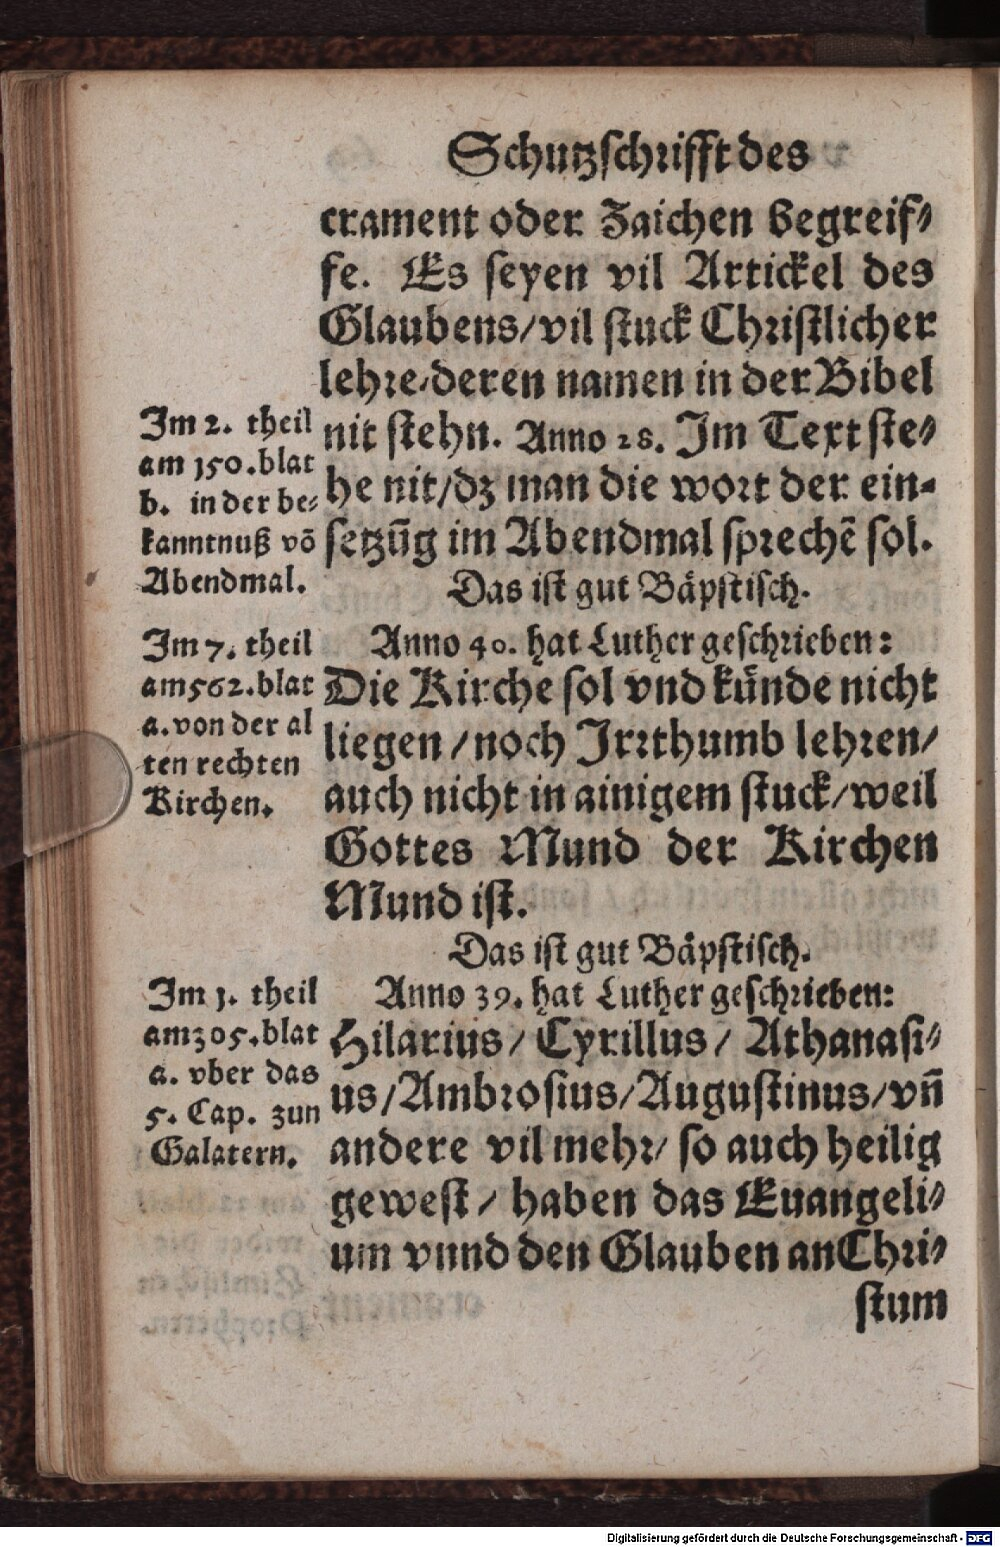 Schutzschrifft des
crament oder Zaichen begreif⸗
fe. Es seyen vil Artickel des
Glaubens/vil stuck Christlicher
lehre/deren namen in der Bibel
nit stehn. Anno 28. Im Text ste⸗
he nit/dz man die wort der ein⸗
setzũg im Abendmal sprechẽ sol.
Im 2. theil
am 150.blat
b. in der be⸗
kanntnuß võ
Abendmal.
Das ist gut Bäpstisch.
Anno 40. hat Luther geschrieben:
Die Kirche sol vnd künde nicht
liegen/noch Irrthumb lehren/
auch nicht in ainigem stuck/weil
Gottes Mund der Kirchen
Mund ist.
Im 7. theil
am 562.blat
a. von der al
ten rechten
Kirchen.
Das ist gut Bäpstisch.
Anno 39. hat Luther geschrieben:
Hilarius/ Cyrillus/ Athanasi⸗
us/Ambrosius/Augustinus/vñ
andere vil mehr/ so auch heilig
gewest/ haben das Euangeli⸗
um vnnd den Glauben an Chri⸗
stum
Im 1. theil
am 305.blat
a. vber das
5. Cap. zun
Galatern.
Digitalisierung gefördert durch die Deutsche Forschungsgemeinschaft - DFG